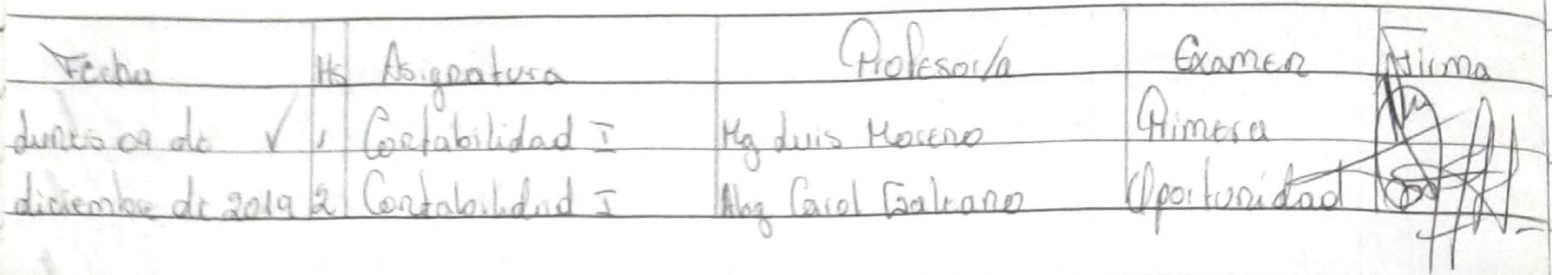 Fecha Hs Asignatura Profesor/a Examen Firma
Lunes 09 de ✓ 1 Contabilidad I Mg Luis Moreno Primera
diciembre de 2019 2 Contabilidad I Abg Carol Galeano Oportunidad